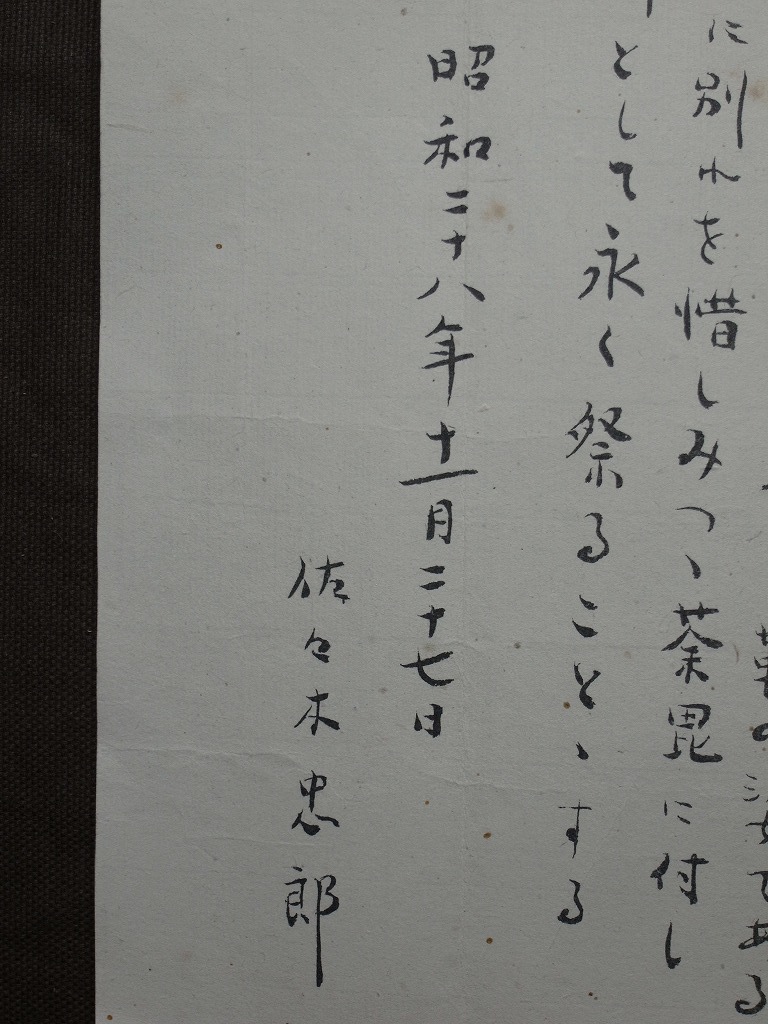 の姿である
に別れを惜しみつゝ荼毘に付し
として永く祭ることゝする
昭和二十八年十一月二十七日
佐々木忠郎